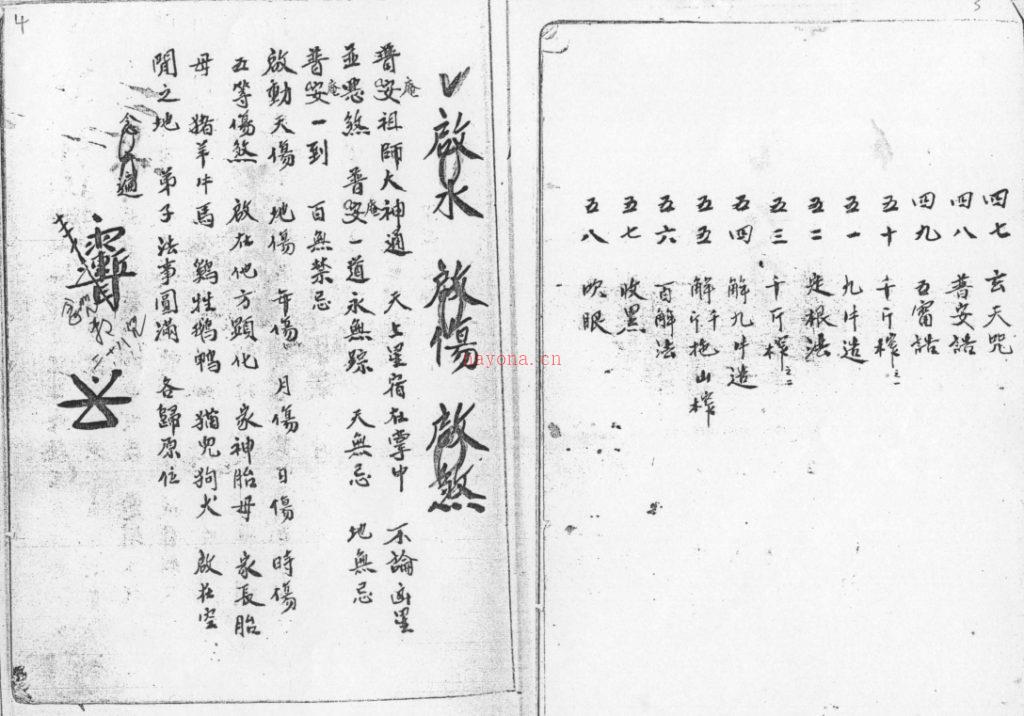 四七 玄天咒
四八 普安誥
四九 五雷誥
五十 千斤榨之一
五一 九牛造
五二 定根法
五三 千斤榨之二
五四 解九牛造
五五 解千斤拖山榨
五六 百解法
五七 收黑
五八 吹眼
啟水 啟傷 啟煞
普庵祖師大神通 天上星宿在掌中 不論凶星
並惡煞 普庵一道永無踪 天無忌 地無忌
普庵一到 百無禁忌
啟動天傷 地傷 年傷 月傷 日傷 時傷
五等傷煞 啟在他方顯化 家神胎母 家長胎
母 猪羊牛馬 鷄牲鵝鴨 猫兒狗犬 啟在空
閒之地 弟子法事圓滿 各歸原位
4
5
nayona.cn